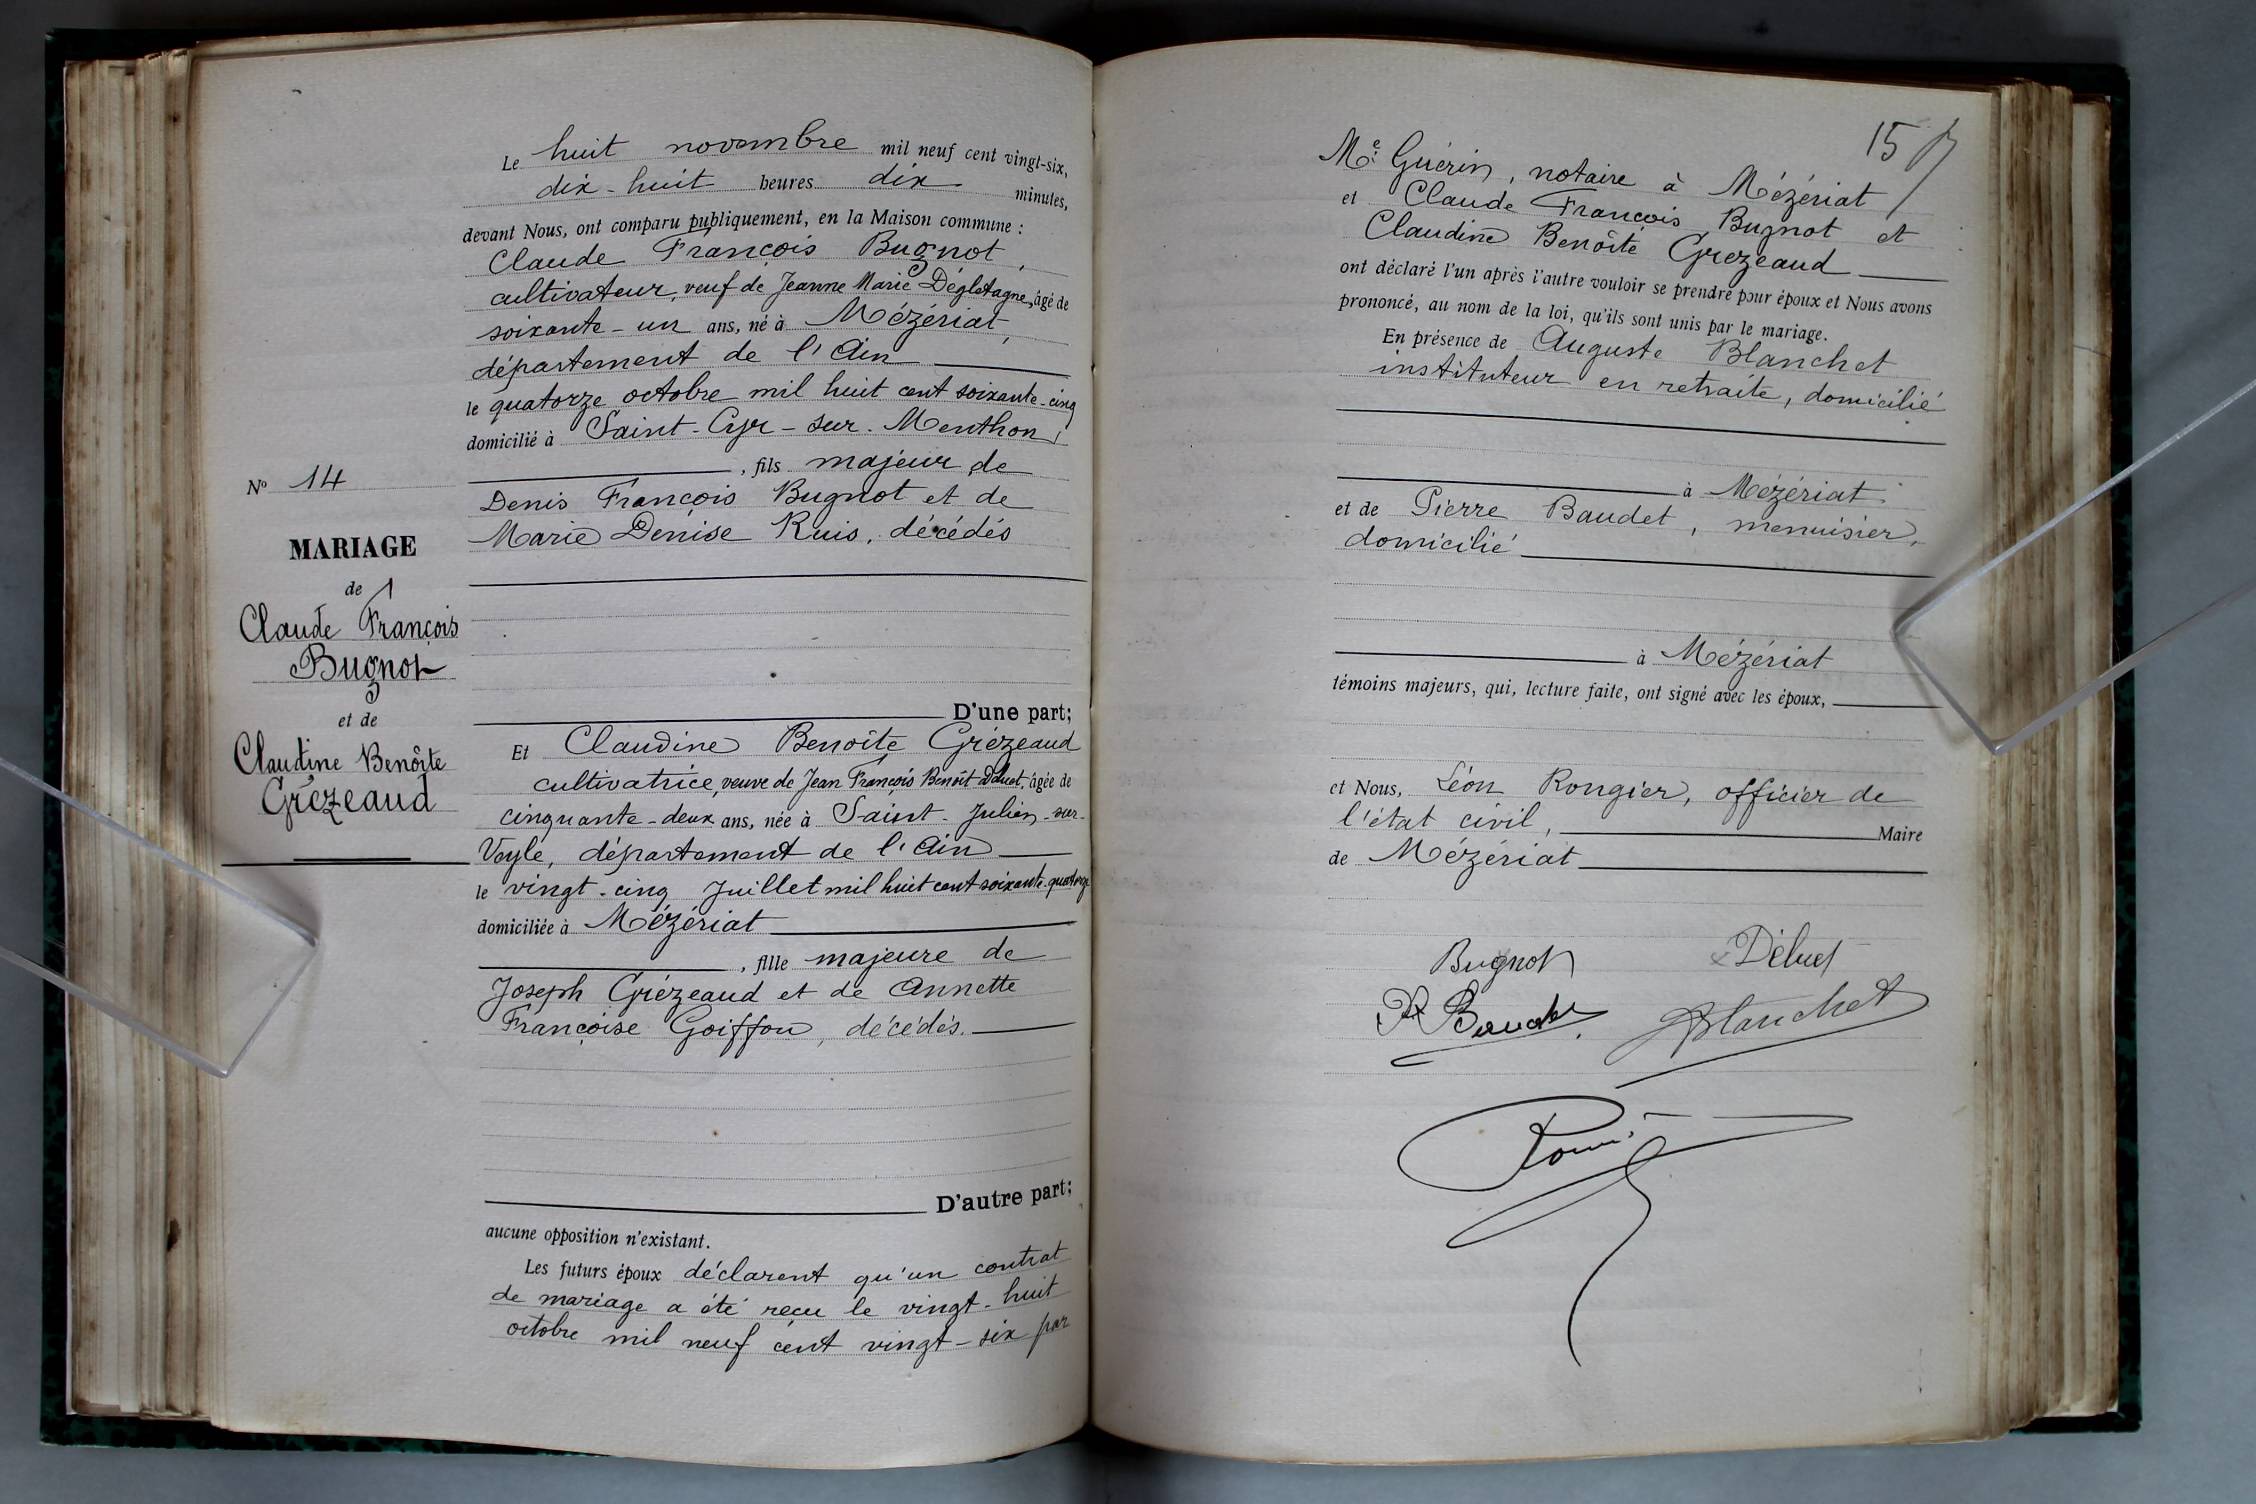 Le huit novembre mil neuf cent vingt-six,
dix-huit heures dix minutes,
devant Nous, ont comparu publiquement, en la Maison commune :
Claude François Bugnot,
cultivateur, veuf de Jeanne Marie Dégletagne, âgé de
soixante-un ans, né à Mézériat,
département de l'Ain
le quatorze octobre mil huit cent soixante-cinq
domicilié à Saint-Cyr-sur-Menthon,
, fils majeur de
Denis François Bugnot et de
Marie Denise Ruis, décédés
N° 14
MARIAGE
de
Claude François
Bugnot
et de
Claudine Benôite
Grézeaud
D'une part;
Et Claudine Benoîte Grézeaud
cultivatrice, veuve de Jean François Benoît Déluet, âgée de
cinquante-deux ans, née à Saint-Julien-sur-
Veyle, département de l'Ain
le vingt-cinq Juillet mil huit cent soixante-quatorze
domiciliée à Mézériat
, fille majeure de
Joseph Grézeaud et de Annette
Françoise Goiffon, décédés.
D'autre part;
aucune opposition n'existant.
Les futurs époux déclarent qu'un contrat
de mariage a été reçu le vingt-huit
octobre mil neuf cent vingt-six par
15
Me Guérin, notaire à Mézériat
et Claude François Bugnot et
Claudine Benôite Grezeaud
ont déclaré l'un après l'autre vouloir se prendre pour époux et Nous avons
prononcé, au nom de la loi, qu'ils sont unis par le mariage.
En présence de Auguste Blanchet
instituteur en retraite, domicilié
à Mézériat
et de Pierre Baudet, menuisier,
domicilié
à Mézériat
témoins majeurs, qui, lecture faite, ont signé avec les époux,
et Nous, Léon Rongier, officier de
l'état civil, Maire
de Mézériat
Bugnot
Déluet
P Baudet
A Blanchet